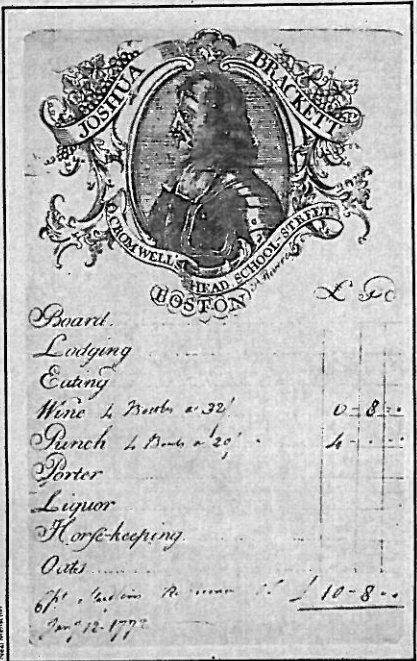 JOSHUA BRACKETT
O. CROMWELL'S HEAD SCHOOL-STREET
BOSTON
£
Board
Lodging
Eating
Wine 4 Bottles a 32/ 0 - 8 - -
Punch 4 Bowls a 20/ 4 - - -
Porter
Liquor
Horse-keeping
Oats
£ 10 - 8 - -
Jany 12 - 1772